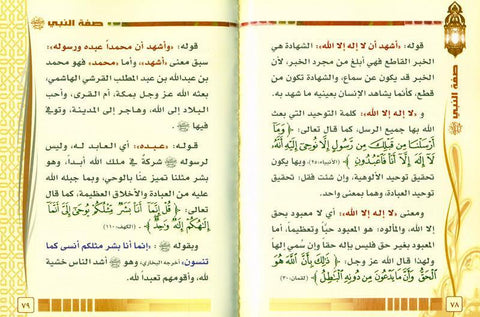 صفة النبي ﷺ
قوله: «أشهد أن لا إله إلا الله»: الشهادة هي
الخبر القاطع فهي أبلغ من مجرد الخبر، لأن
الخبر قد يكون عن سماع، والشهادة تكون عن
قطع، كأنما يشاهد الإنسان بعينيه ما شهد به.
و «لا إله إلا الله»: كلمة التوحيد التي بعث
الله بها جميع الرسل، كما قال تعالى: ﴿وَمَآ
أَرْسَلْنَا مِن قَبْلِكَ مِن رَّسُولٍ إِلَّا نُوحِىٓ إِلَيْهِ أَنَّهُۥ
لَآ إِلَٰهَ إِلَّآ أَنَا۠ فَٱعْبُدُونِ﴾ (الأنبياء:٢٥)، وبها يكون
توحيد الألوهية، وإن شئت فقل: تحقيق
توحيد العبادة، وهما بمعنى واحد.
ومعنى «لا إله إلا الله»: أي لا معبود بحق
إلا الله، والمألوه: هو المعبود حباً وتعظيماً، أما
المعبود بغير حق فليس بإله حقاً وإن سُمي إلهاً
ولهذا قال الله عز وجل: ﴿ذَٰلِكَ بِأَنَّ ٱللَّهَ هُوَ
ٱلْحَقُّ وَأَنَّ مَا يَدْعُونَ مِن دُونِهِ ٱلْبَٰطِلُ﴾ (لقمان:٣٠)
٧٨
صفة النبي ﷺ
قوله: «وأشهد أن محمداً عبده ورسوله»:
سبق معنى «أشهد»، وأما «محمد» فهو محمد
بن عبدالله بن عبد المطلب القرشي الهاشمي،
بعثه الله عز وجل بمكة، أم القرى، وأحب
البلاد إلى الله، وهاجر إلى المدينة، وتوفي
فيها ﷺ.
قوله: «عبده»: أي العابد له، وليس
لرسوله ﷺ شركة في ملك الله أبداً، وهو
بشر مثلنا تميز عنا بالوحي، وبما جبله الله
عليه من العبادة والأخلاق العظيمة، كما قال
تعالى: ﴿قُلْ إِنَّمَآ أَنَا۠ بَشَرٌ مِّثْلُكُمْ يُوحَىٰٓ إِلَىَّ أَنَّمَآ
إِلَٰهُكُمْ إِلَٰهٌ وَٰحِدٌ﴾ (الكهف:١١٠)
وبقوله ﷺ: «إنما أنا بشر مثلكم أنسى كما
تنسون» أخرجه البخاري) وهو ﷺ أشد الناس خشية
لله، وأقومهم تعبداً لله.
٧٩